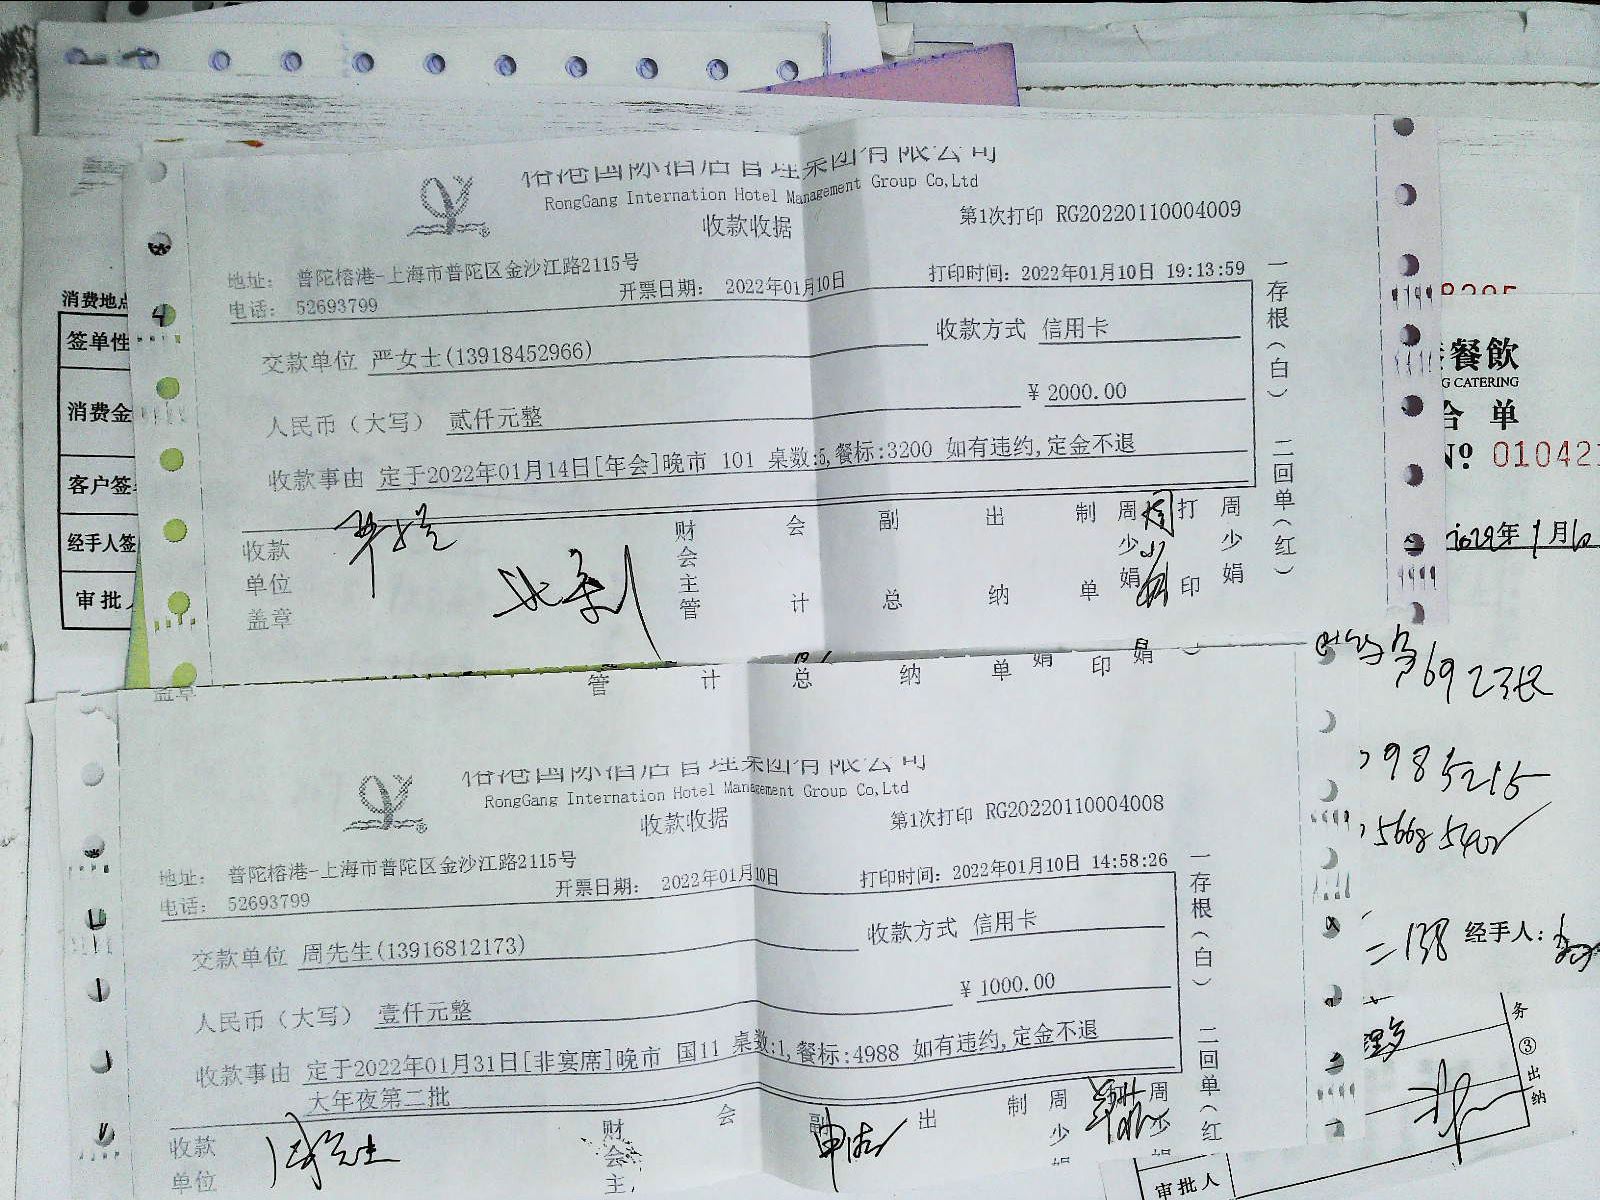 国际酒店管理集团有限公司
RongGang Internation Hotel Management Group Co,Ltd
收款收据
第1次打印 RG20220110004009
地址: 普陀榕港-上海市普陀区金沙江路2115号
电话: 52693799
开票日期: 2022年01月10日
打印时间: 2022年01月10日 19:13:59
交款单位 严女士(13918452966)
收款方式 信用卡
人民币(大写) 贰仟元整
¥ 2000.00
收款事由 定于2022年01月14日[年会]晚市 101 桌数:5,餐标:3200 如有违约,定金不退
收款单位盖章
财会主管
会计
副总
出纳
制单
周少娟
打印
周少娟
一存根(白) 二回单(红)
消费地点
签单性
消费金
客户签
经手人签
审批人
餐飲
G CATERING
合 单
Nº 01042
2022年1月10
盖章
管 计 总 纳 单 娟 印 娟
国际酒店管理集团有限公司
RongGang Internation Hotel Management Group Co,Ltd
收款收据
第1次打印 RG20220110004008
地址: 普陀榕港-上海市普陀区金沙江路2115号
电话: 52693799
开票日期: 2022年01月10日
打印时间: 2022年01月10日 14:58:26
交款单位 周先生(13916812173)
收款方式 信用卡
人民币(大写) 壹仟元整
¥ 1000.00
收款事由 定于2022年01月31日[非宴席]晚市 国11 桌数:1,餐标:4988 如有违约,定金不退
大年夜第二批
收款单位
周先生
财会主
会
副
出
制
周少
周少
一存根(白) 二回单(红
985215
=138 经手人:
务③出纳
审批人